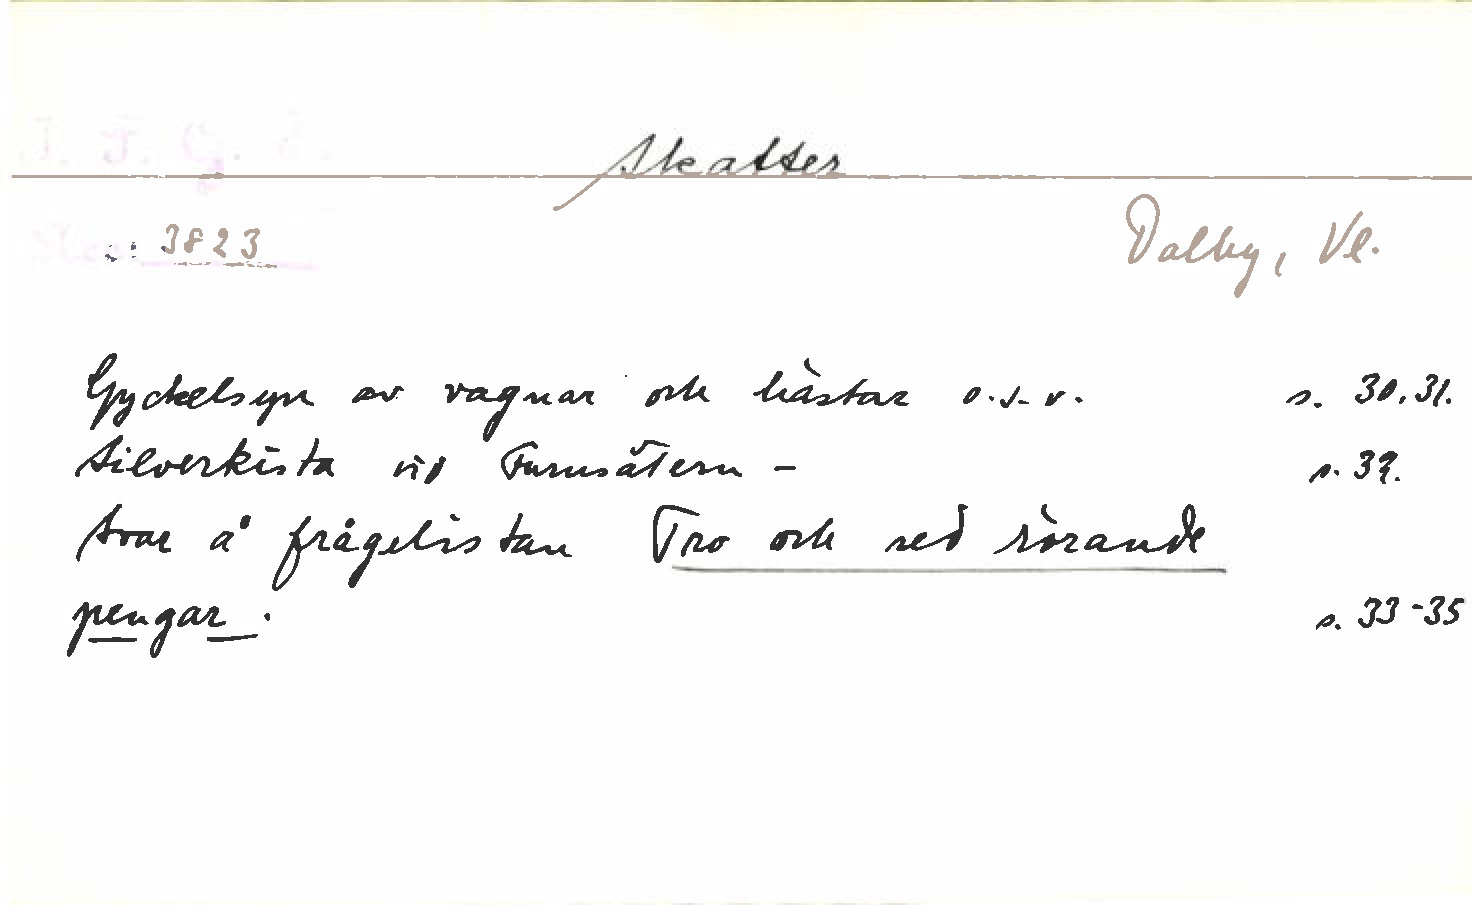 I. F. G. H.
Skatter
Acc. : 3823
Dalby, Vl.
Gyckelsyn av vagnar och hästar o.s.v. s. 30, 31.
Silverkista vid Furusätern – s. 39.
Svar å frågelistan Tro och sed rörande
pengar. s. 33-35